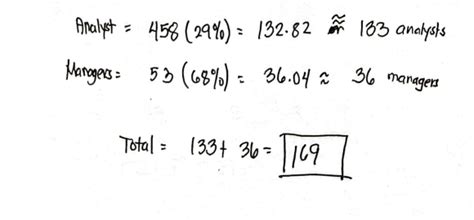 Analyst = 458 (29%) = 132.82 ≈ 133 analysts
Mangers = 53 (68%) = 36.04 ≈ 36 managers
Total = 133 + 36 = 169